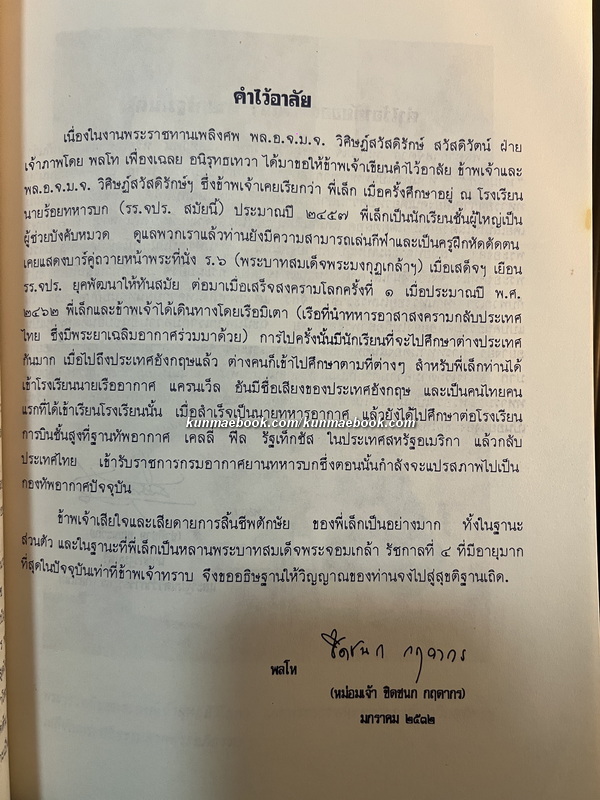 คำไว้อาลัย
เนื่องในงานพระราชทานเพลิงศพ พล.อ.จ.ม.จ. วิศิษฎ์สวัสดิรักษ์ สวัสดิวัตน์ ฝ่าย
เจ้าภาพโดย พลโท เฟื่องเฉลย อนิรุทธเทวา ได้มาขอให้ข้าพเจ้าเขียนคำไว้อาลัย ข้าพเจ้าและ
พล.อ.จ.ม.จ. วิศิษฎ์สวัสดิรักษ์ฯ ซึ่งข้าพเจ้าเคยเรียกว่า พี่เล็ก เมื่อครั้งศึกษาอยู่ ณ โรงเรียน
นายร้อยทหารบก (รร.จปร. สมัยนี้) ประมาณปี ๒๔๕๗ พี่เล็กเป็นนักเรียนชั้นผู้ใหญ่เป็น
ผู้ช่วยบังคับหมวด ดูแลพวกเราแล้วท่านยังมีความสามารถเล่นกีฬาและเป็นครูฝึกหัดดัดตน
เคยแสดงบาร์คู่ถวายหน้าพระที่นั่ง ร.๖ (พระบาทสมเด็จพระมงกุฎเกล้าฯ) เมื่อเสด็จฯ เยือน
รร.จปร. ยุคพัฒนาให้ทันสมัย ต่อมาเมื่อเสร็จสงครามโลกครั้งที่ ๑ เมื่อประมาณปี พ.ศ.
๒๔๖๒ พี่เล็กและข้าพเจ้าได้เดินทางโดยเรือมิเตา (เรือที่นำทหารอาสาสงครามกลับประเทศ
ไทย ซึ่งมีพระยาเฉลิมอากาศร่วมมาด้วย) การไปครั้งนั้นมีนักเรียนที่จะไปศึกษาต่างประเทศ
กันมาก เมื่อไปถึงประเทศอังกฤษแล้ว ต่างคนก็เข้าไปศึกษาตามที่ต่างๆ สำหรับพี่เล็กท่านได้
เข้าโรงเรียนนายเรืออากาศ แครนเว็ล อันมีชื่อเสียงของประเทศอังกฤษ และเป็นคนไทยคน
แรกที่ได้เข้าเรียนโรงเรียนนั้น เมื่อสำเร็จเป็นนายทหารอากาศ แล้วยังได้ไปศึกษาต่อโรงเรียน
kunmaebook.com/kunmaebook.com
การบินชั้นสูงที่ฐานทัพอากาศ เคลลี่ ฟีล รัฐเท็กซัส ในประเทศสหรัฐอเมริกา แล้วกลับ
ประเทศไทย เข้ารับราชการกรมอากาศยานทหารบกซึ่งตอนนั้นกำลังจะแปรสภาพไปเป็น
กองทัพอากาศปัจจุบัน
ข้าพเจ้าเสียใจและเสียดายการสิ้นชีพตักษัย ของพี่เล็กเป็นอย่างมาก ทั้งในฐานะ
ส่วนตัว และในฐานะที่พี่เล็กเป็นหลานพระบาทสมเด็จพระจอมเกล้า รัชกาลที่ ๔ ที่มีอายุมาก
ที่สุดในปัจจุบันเท่าที่ข้าพเจ้าทราบ จึงขออธิษฐานให้วิญญาณของท่านจงไปสู่สุขติฐานเถิด.
ชิดชนก กฤดากร
พลโท
(หม่อมเจ้า ชิดชนก กฤดากร)
มกราคม ๒๕๓๒